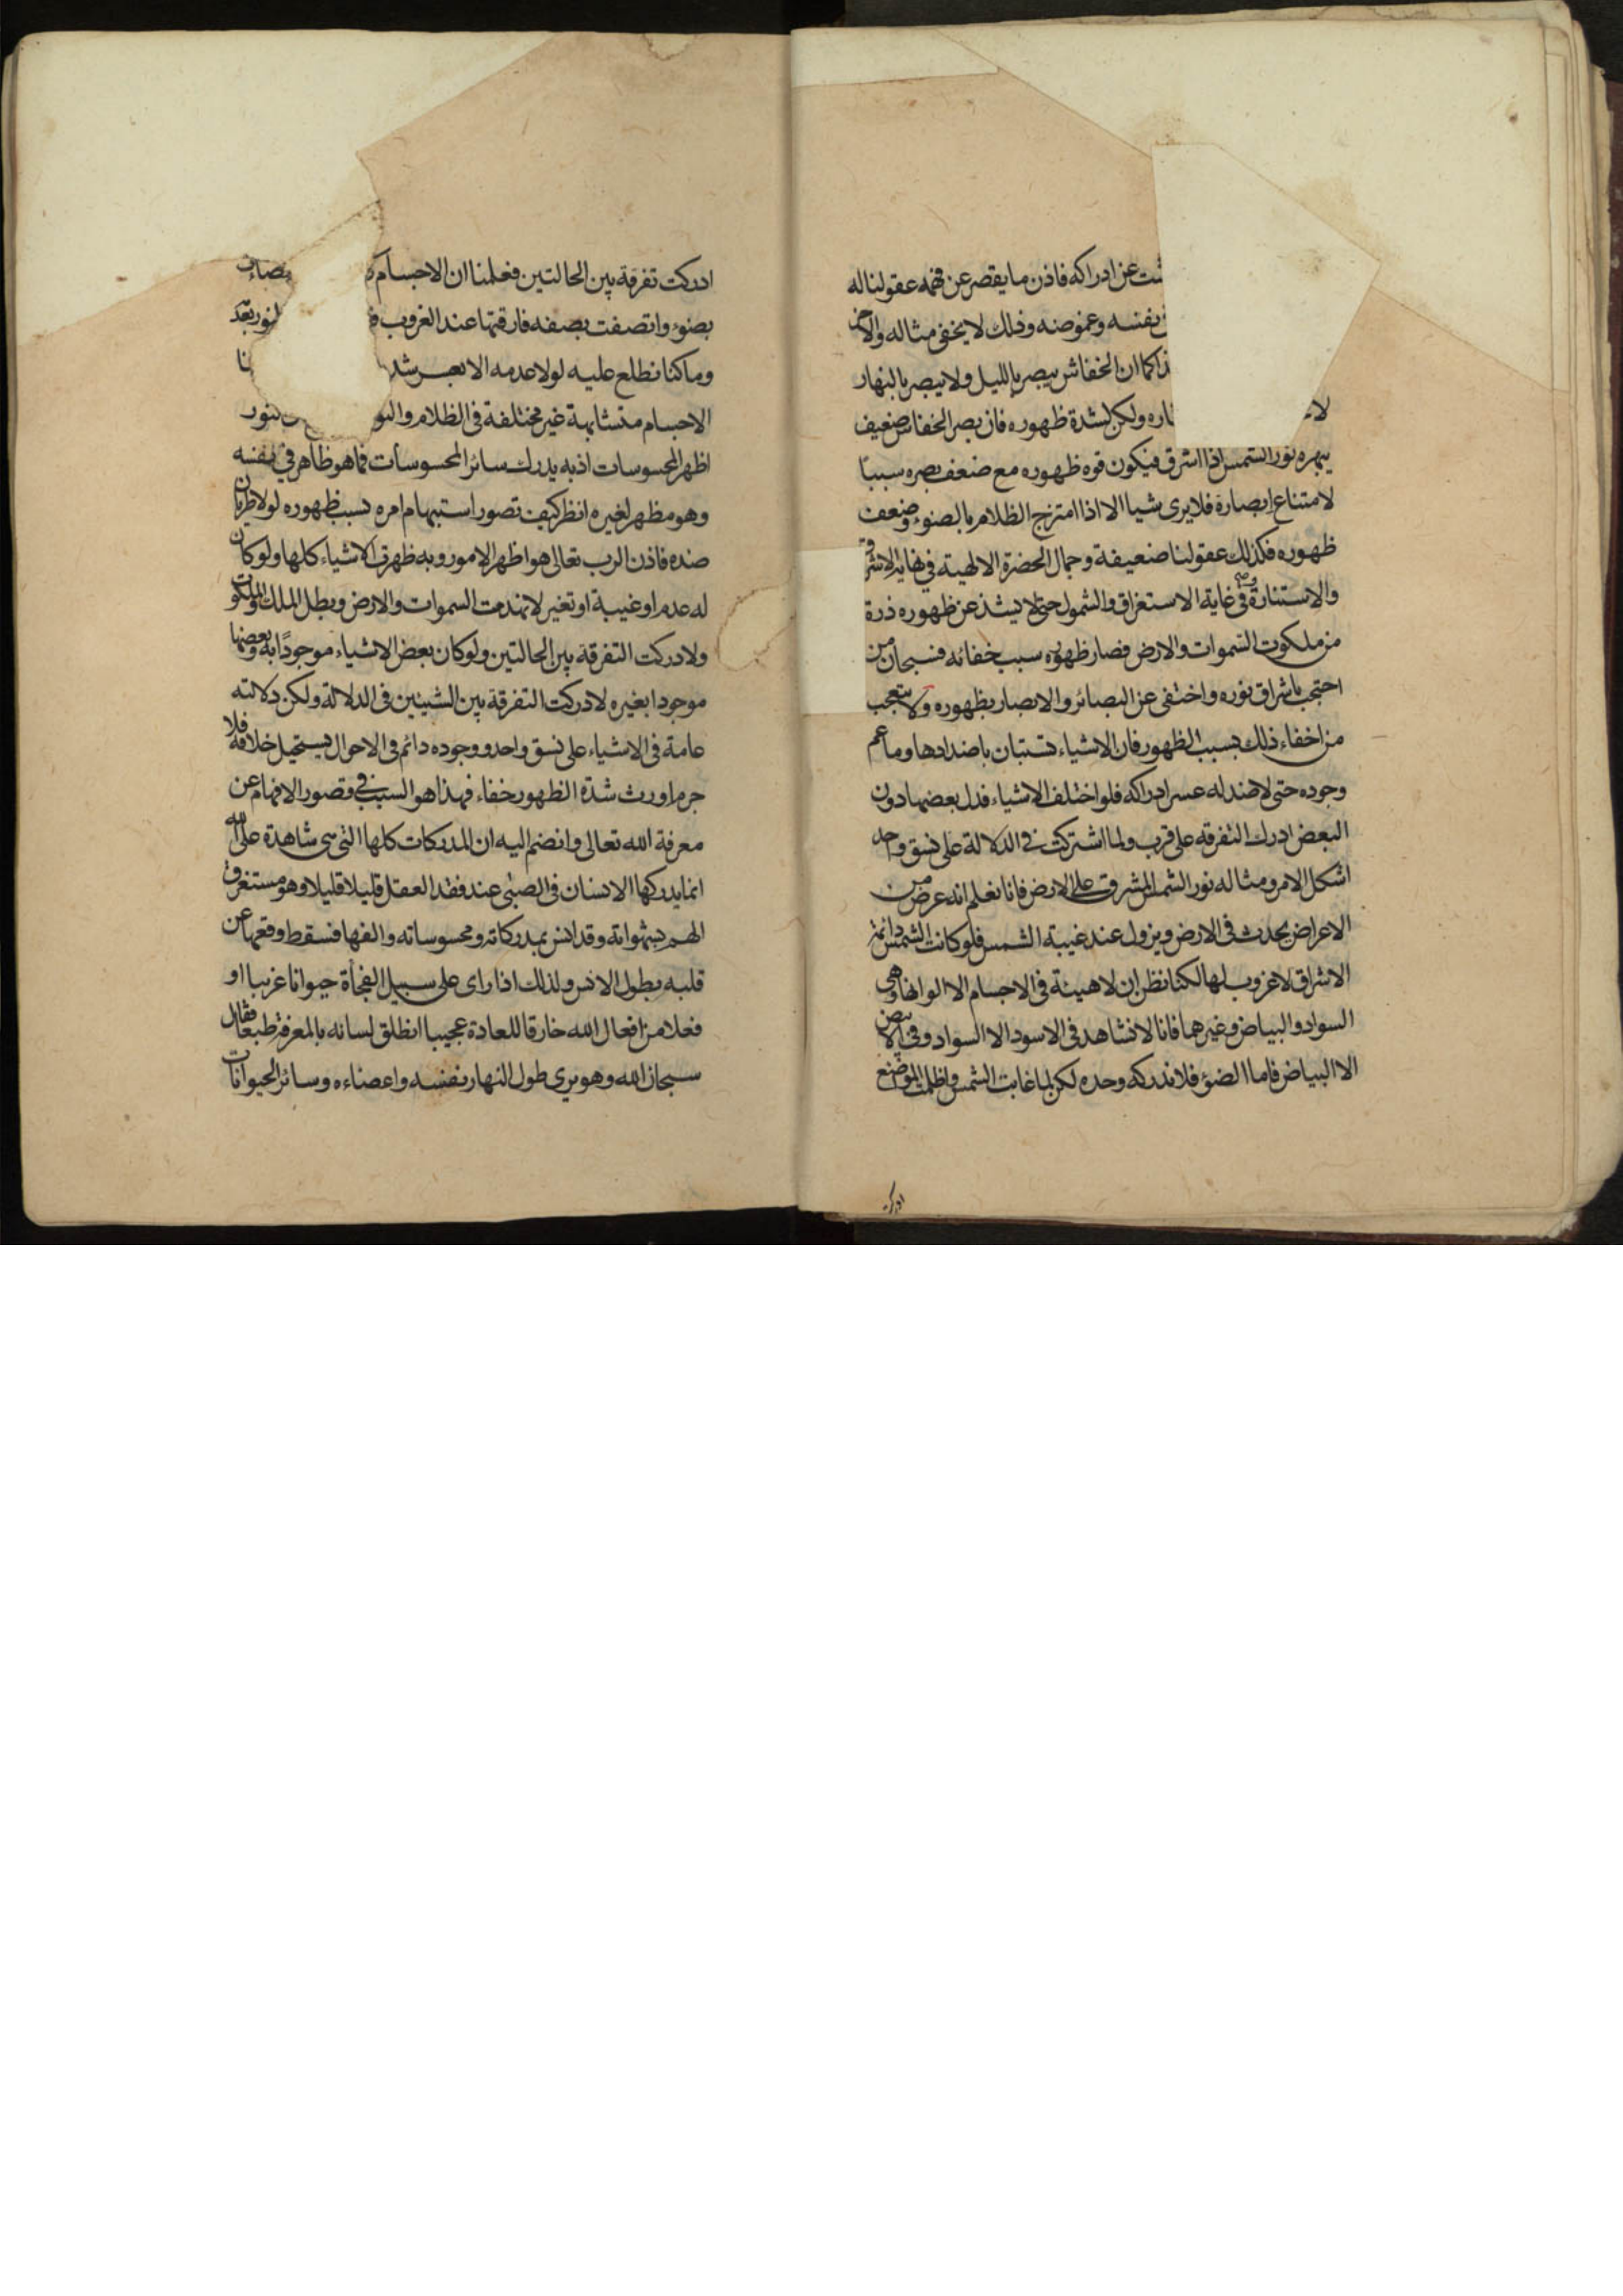 عن ادراكه فاذن ما يقصر عن فهمه عقولنا له
بنفسه وغموضه وذلك لا يخفى مثاله والاخر
كما ان الخفاش يبصر بالليل ولا يبصر بالنهار
ولكن لشدة ظهوره فان بصر الخفاش ضعيف
يبهره نور الشمس اذا اشرق فيكون قوه ظهوره مع ضعف بصره سببا
لامتناع ابصاره فلا يرى شيا الا اذا امتزج الظلام بالضوء وضعف
ظهوره فكذلك عقولنا ضعيفة وجمال الحضرة الالهية في نهاية الاشراق
والاستنارة وفي غاية الاستغراق والشمول حتى لا يشذ عن ظهوره ذرة
من ملكوت السموات والارض فصار ظهوره سبب خفائه فسبحان من
احتجب باشراق نوره واختفى عن البصائر والابصار بظهوره ولا يتعجب
من اخفاء ذلك بسبب الظهور فان الاشياء تستبان باضدادها وما عم
وجوده حتى لا ضد له عسر ادراكه فلو اختلف الاشياء فدل بعضها دون
البعض ادرك التفرقه على قرب ولما اشتركت في الدلالة على نسق واحد
اشكل الامر ومثاله نور الشمس المشرق على الارض فانا نعلم انه عرض من
الاعراض يحدث في الارض ويزول عند غيبة الشمس فلو كانت الشمس دائمة
الاشراق لا غروب لها لكنا نظن ان لا هيئة في الاجسام الا الوانها وهي
السواد والبياض وغيرهما فانا لا نشاهد في الاسود الا السواد وفي الابيض
الا البياض فاما الضوء فلا ندركه وحده لكن لما غابت الشمس واظلمت المواضع
ادركت تفرقة بين الحالتين فعلمنا ان الاجسام
بضوء واتصفت بصفه فارقتها عند الغروب
وما كنا نطلع عليه لولا عدمه الا بعسر
الاجسام متشابهة غير مختلفة في الظلام
اظهر المحسوسات اذ به يدرك سائر المحسوسات فما هو ظاهر في نفسه
وهو مظهر لغيره انظر كيف تصور استبهام امره بسبب ظهوره لولا طريان
ضده فاذن الرب تعالى هو اظهر الامور وبه ظهرت الاشياء كلها ولو كان
له عدم او غيبة او تغير لانهدمت السموات والارض وبطل الملك والملكوت
ولادركت التفرقة بين الحالتين ولو كان بعض الاشياء موجودا به وبعضها
موجودا بغيره لادركت التفرقة بين الشيئين في الدلالة ولكن دلالته
عامة في الاشياء على نسق واحد ووجوده دائم في الاحوال يستحيل خلافه فلا
جرم اورث شدة الظهور خفاء فهذا هو السبب في قصور الافهام عن
معرفة الله تعالى وانضم اليه ان المدركات كلها التي هي شاهدة على الله
انما يدركها الانسان في الصبى عند فقد العقل قليلا قليلا وهو مستغرق
الهم بشهواته وقد انس بمدركاته ومحسوساته والفها فسقط وقعها عن
قلبه بطول الانس ولذلك اذا راى على سبيل الفجأة حيوانا غريبا او
فعلا من افعال الله خارقا للعادة عجيبا انطلق لسانه بالمعرفة طبعا فقال
سبحان الله وهو يرى طول النهار نفسه واعضاءه وسائر الحيوانات